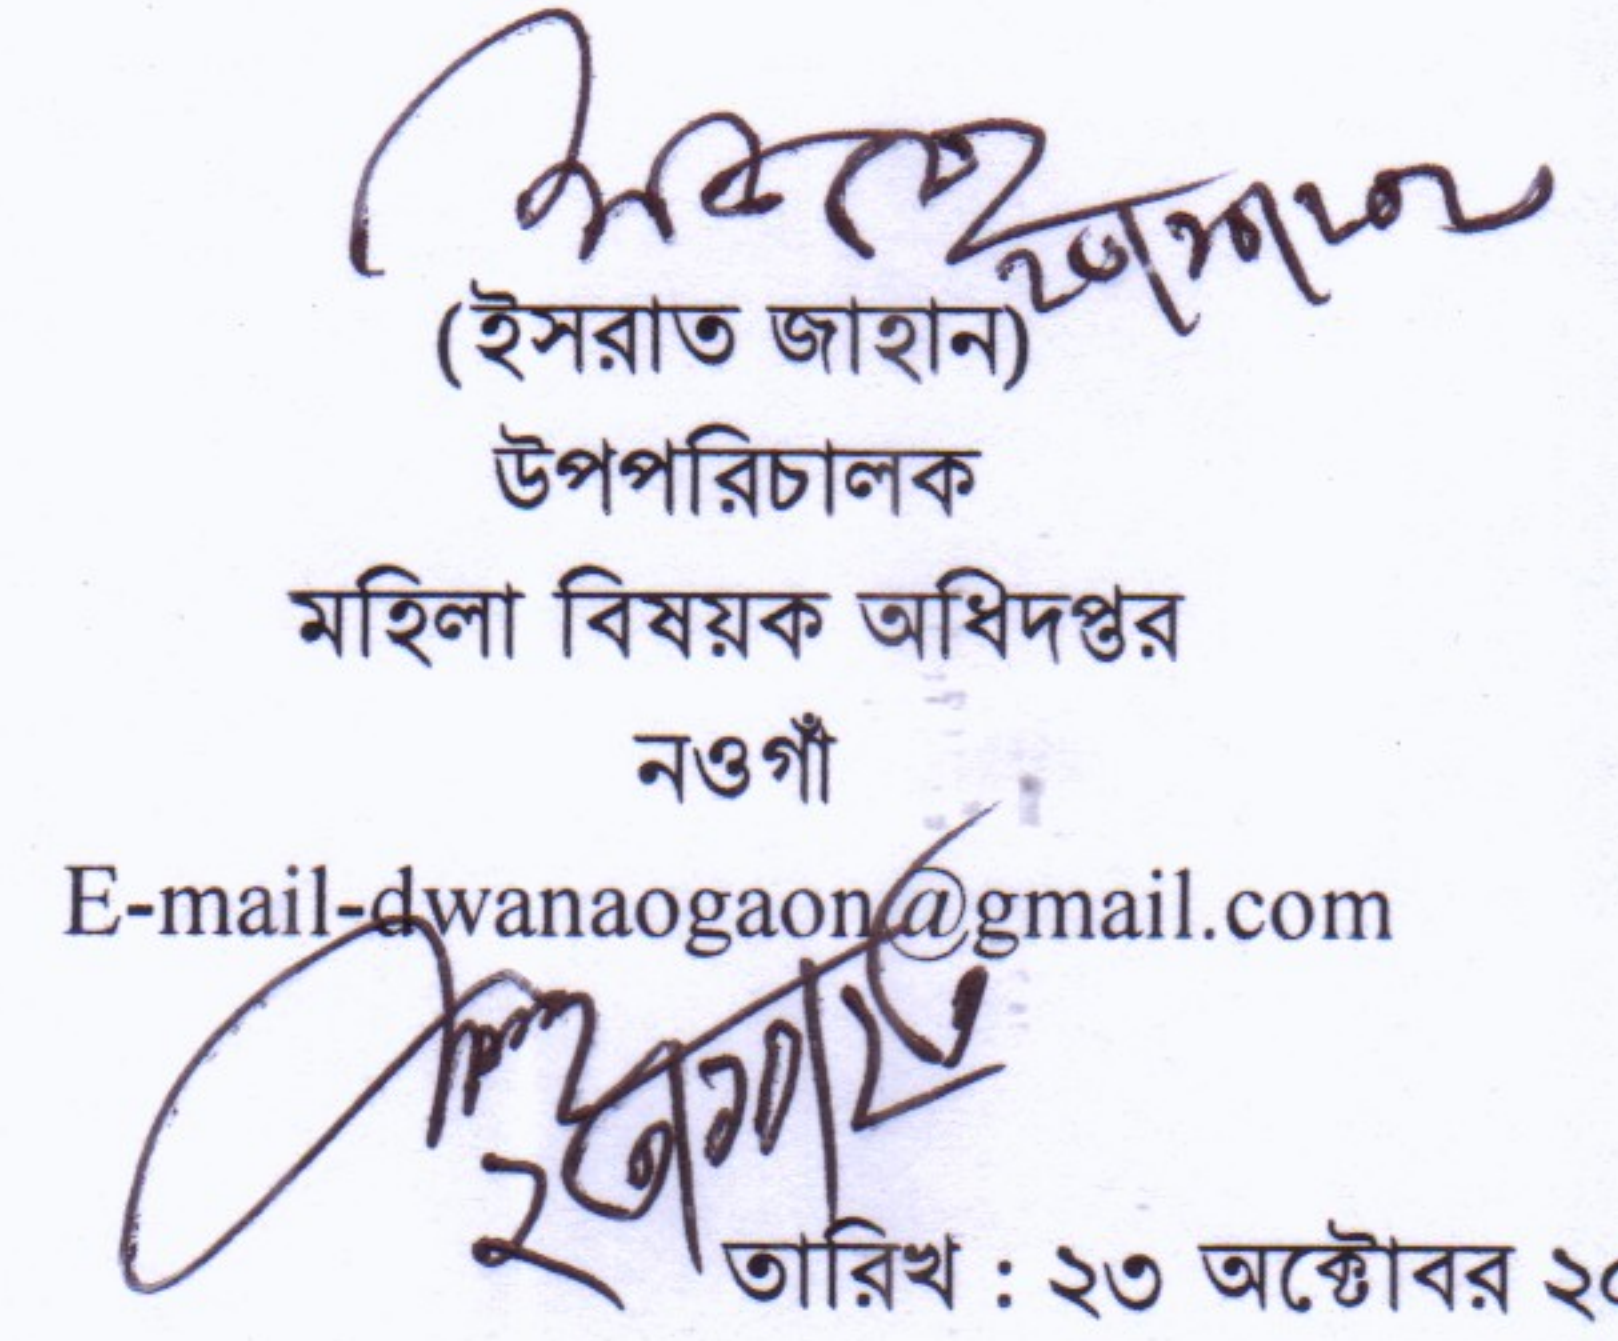 (ইসরাত জাহান)
উপপরিচালক
মহিলা বিষয়ক অধিদপ্তর
নওগাঁ
E-mail-dwanaogaon@gmail.com
তারিখ : ২৩ অক্টোবর